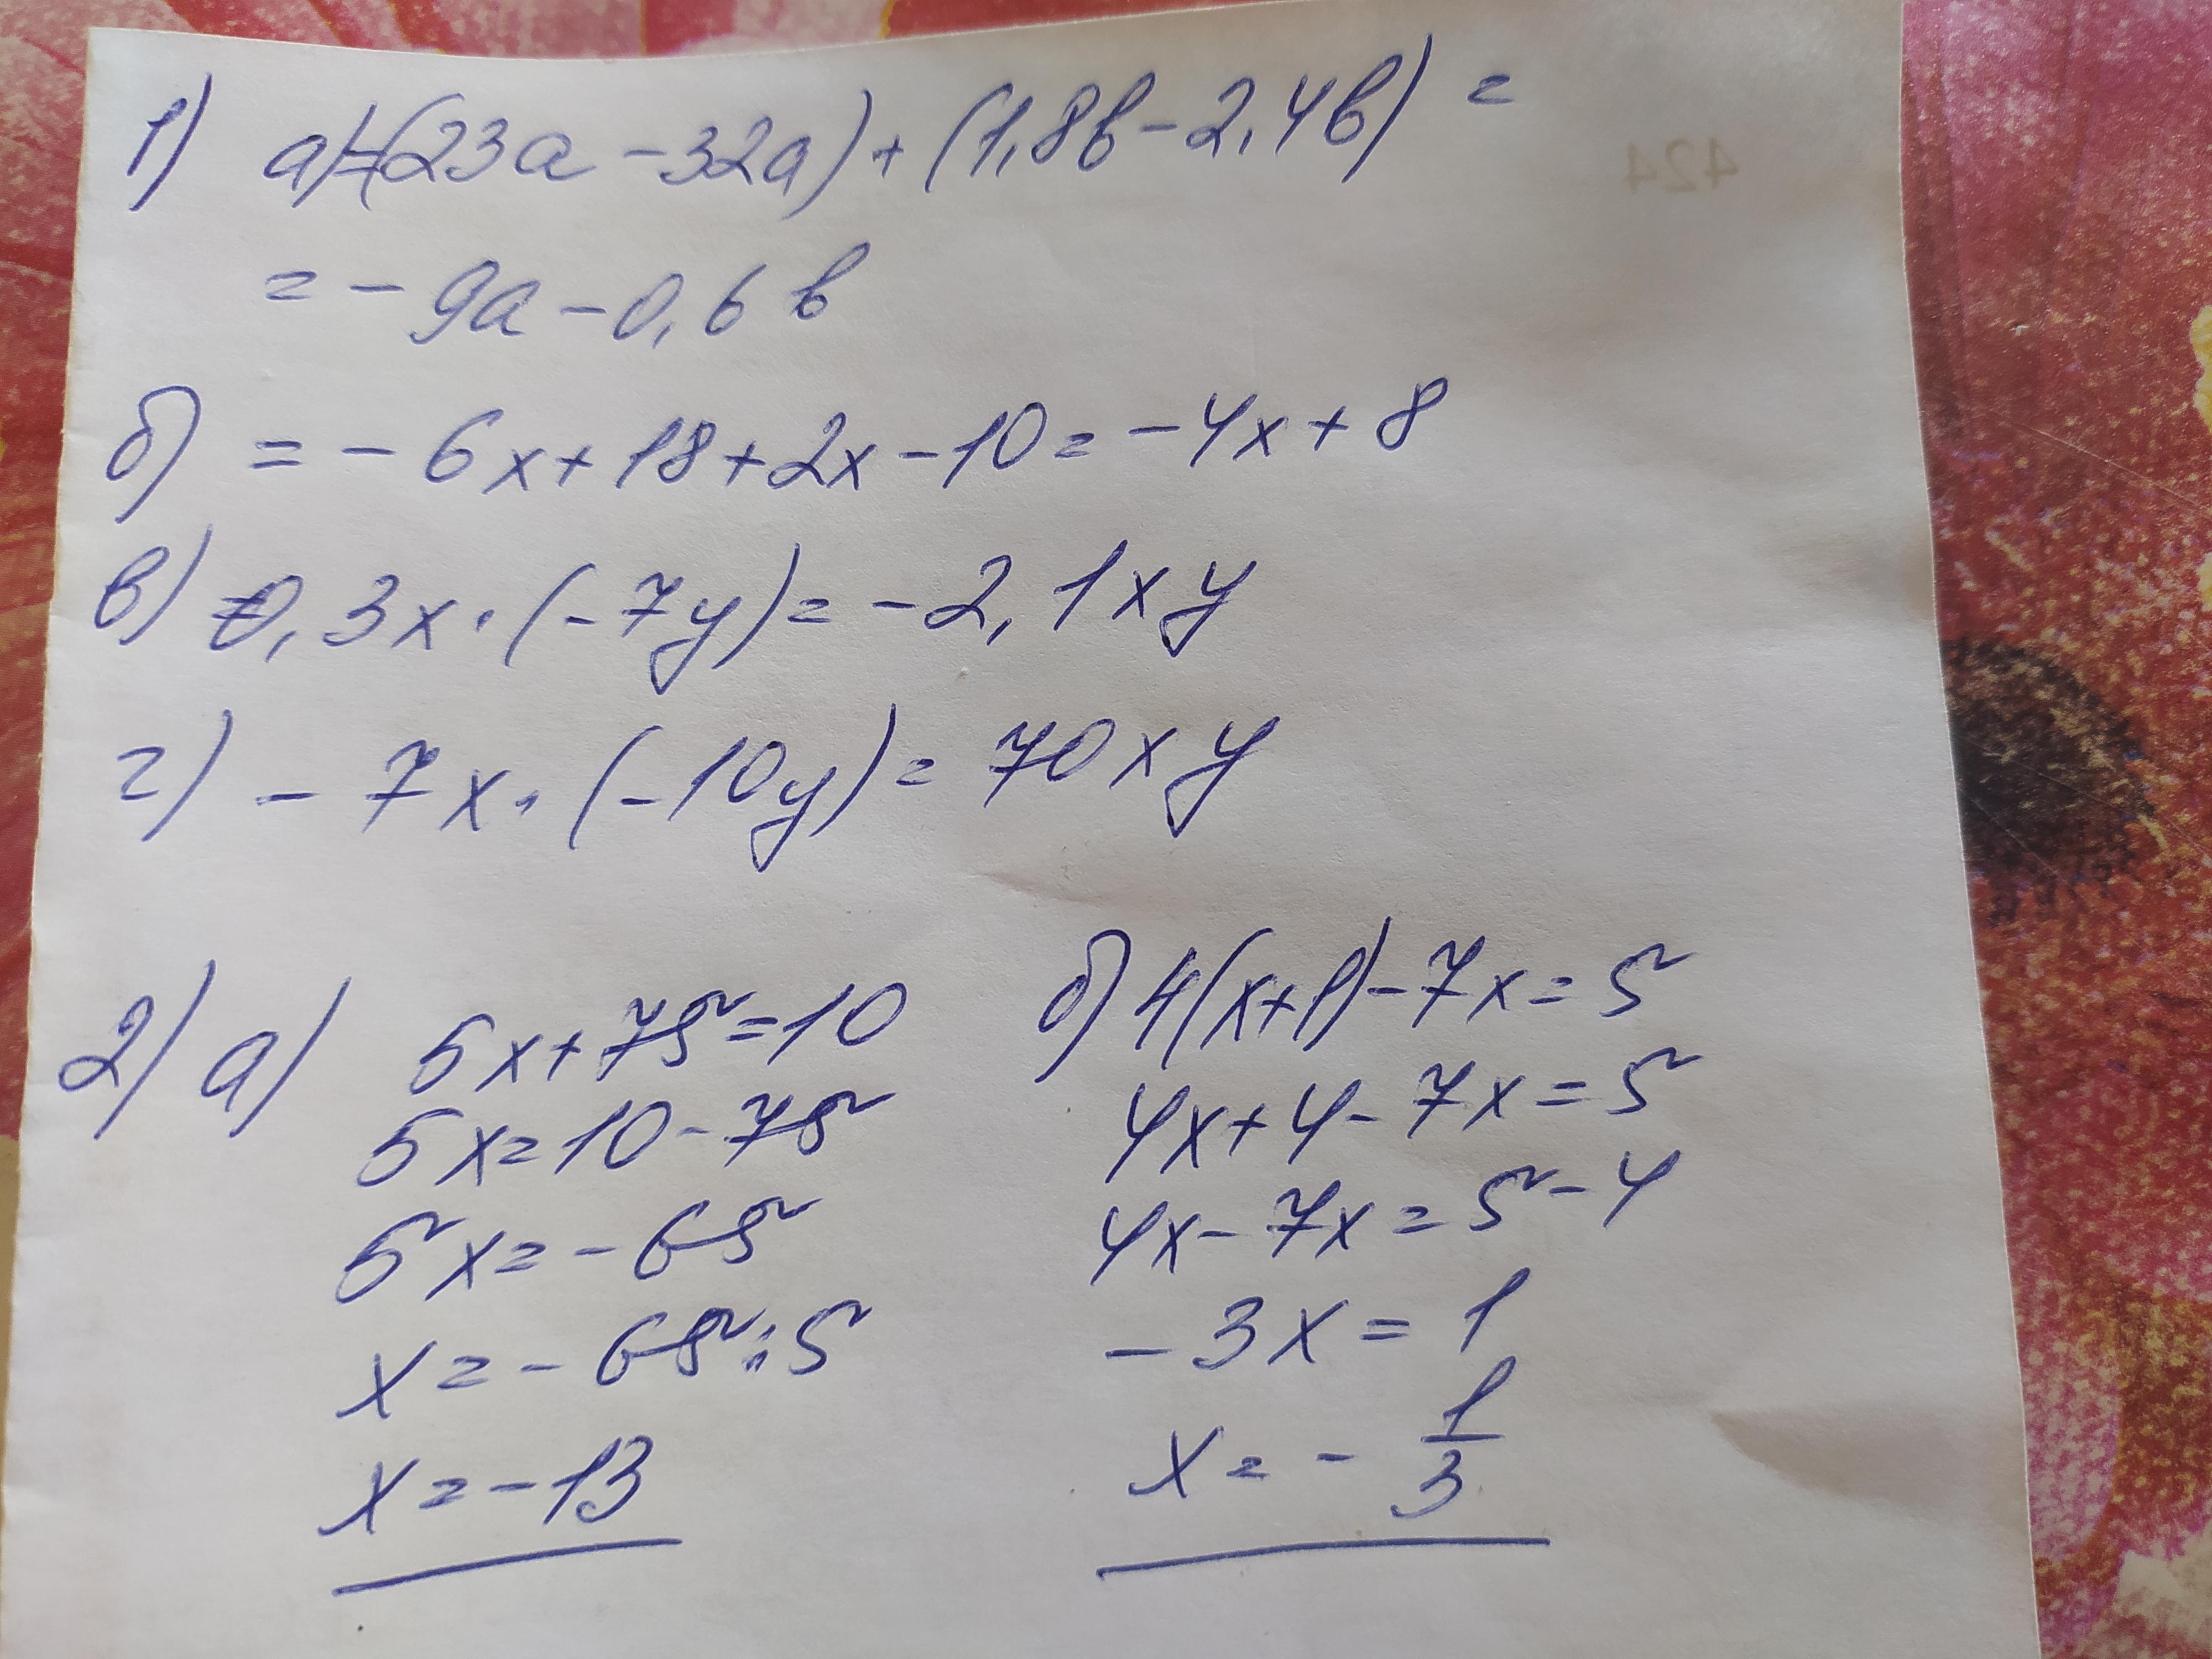 1) а)=(23a-32a)+(1,8b-2,4b)=
=-9a-0,6b
б) =-6x+18+2x-10=-4x+8
в) 0,3x·(-7y)=-2,1xy
г) -7x·(-10y)=70xy
2) а) 5x+75=10
5x=10-75
5x=-65
x=-65:5
x=-13
б) 4(x+1)-7x=5
4x+4-7x=5
4x-7x=5-4
-3x=1
x=-1/3
424